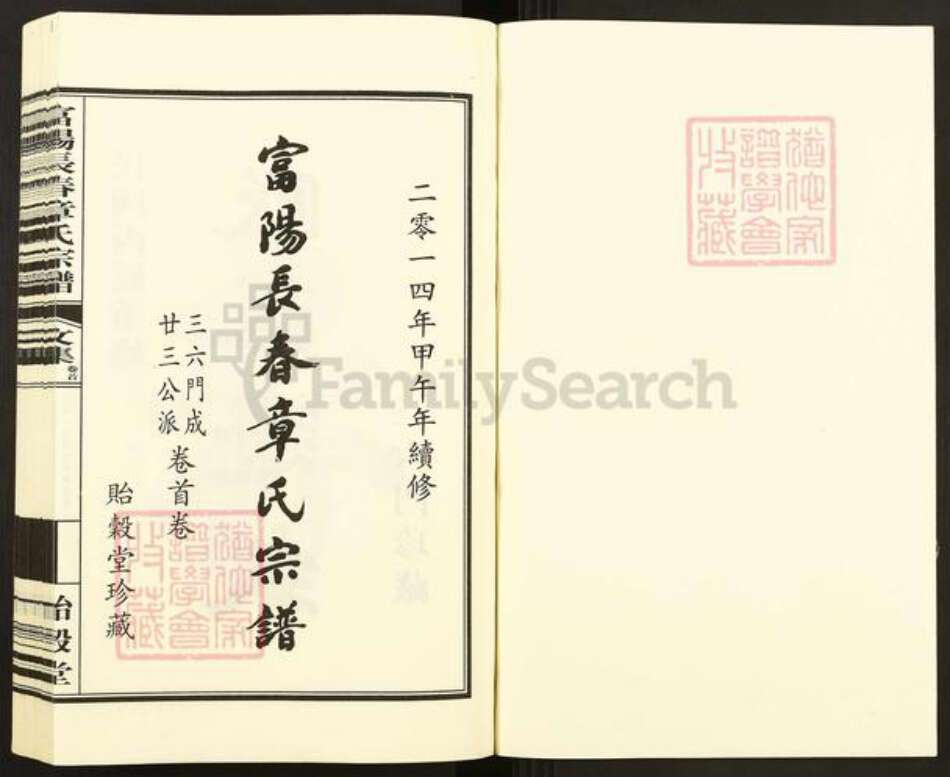 猶他家
譜學會
收藏
二零一四年甲午年續修
富陽長春章氏宗譜
三六門成
廿三公派
卷首卷
貽穀堂珍藏
猶他家
譜學會
收藏
富陽長春章氏宗譜
文集
卷首
貽穀堂
FamilySearch